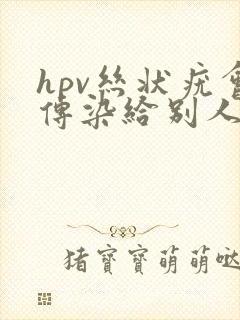 hpv絲狀疣會
傳染給別人
猪寶寶萌萌噠